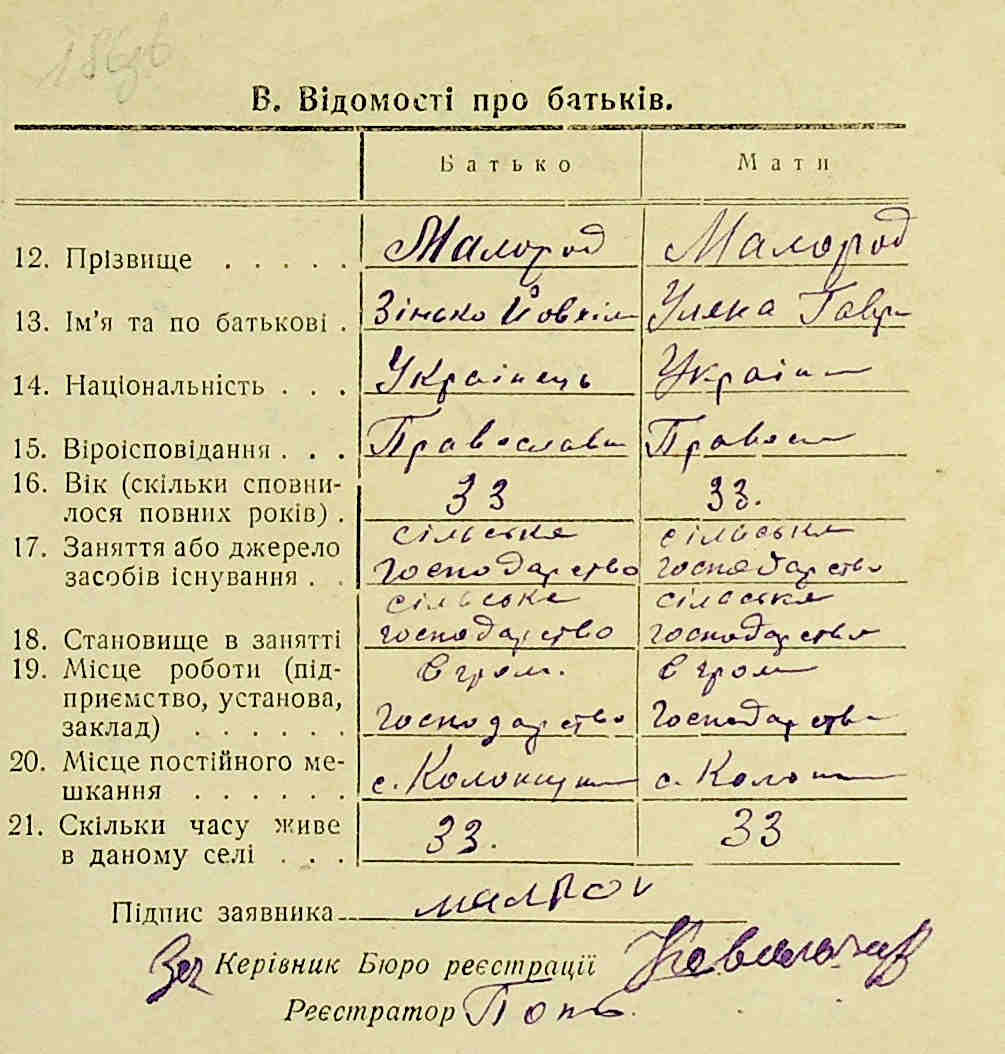 В. Відомості про батьків.
Батько Мати
12. Прізвище . . . . . Малород Малород
13. Ім'я та по батькові . Зінько Йовхім Уляна Гавр
14. Національність . . . Українець Україн
15. Віроісповідання . . . Православн Правосл
16. Вік (скільки сповни-
лося повних років) . 33 33.
сільське сільське
17. Заняття або джерело
засобів існування . . господарство господарство
сільське сільське
18. Становище в занятті господарство господарство
19. Місце роботи (під- в гром. в гром
приємство, установа,
заклад) . . . . . . господарство господарств
20. Місце постійного ме-
шкання . . . . . . с. с.
21. Скільки часу живе
в даному селі . . . 33. 33
Підпис заявника
Керівник Бюро реєстрації
Реєстратор